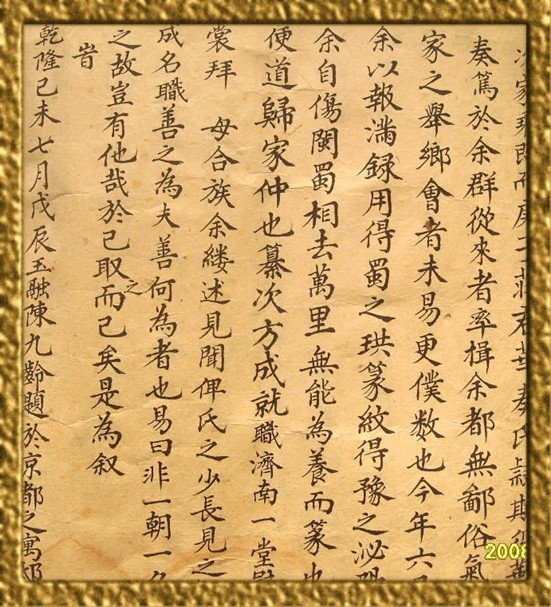 奏篤於余群從來者率揖余都無鄙俗氣
家之舉鄉會者未易更僕数也今年六
余以報滿録用得蜀之珙篆紋得豫之泌
余自傷閩蜀相去萬里無能為養而篆也
便道歸家仲也纂次方成就職濟南一堂
裳拜 母合族余縷述見聞俾氏之少長見之
成名職善之為夫善何為者也易曰非一朝一
之故豈有他哉於己取之而已矣是為叙
旹
乾隆己未七月戊辰玉融陳九齡題於京都之寓邸
2008